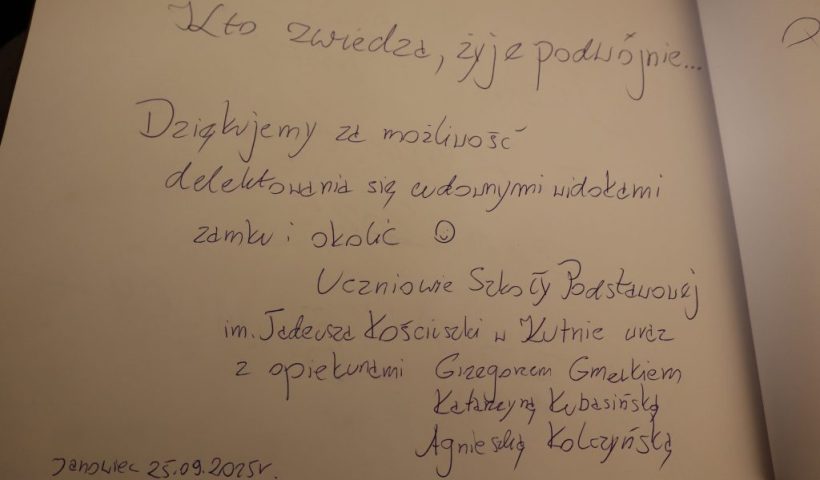 Kto zwiedza, żyje podwójnie...
Dziękujemy za możliwość
delektowania się cudownymi widokami
zamku i okolic ☺
Uczniowie Szkoły Podstawowej
im. Tadeusza Kościuszki w Kutnie wraz
z opiekunami Grzegorzem
Katarzyną Kubasińską
Agnieszką Kolczyńską
Janowiec 25.09.2025r.